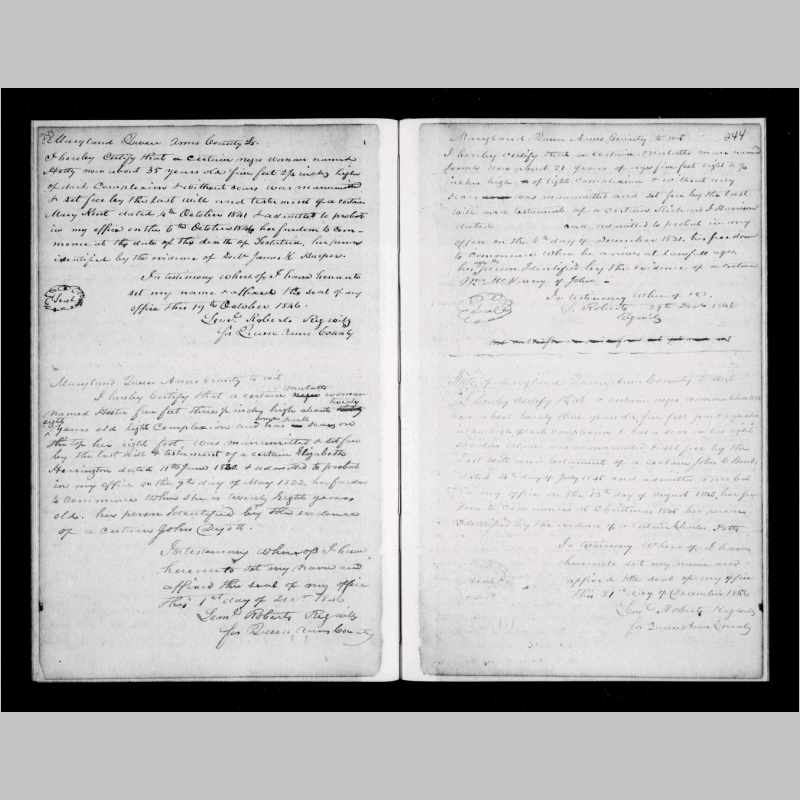 Maryland Queen Anns County Ss.
I hereby Certify that a certain negro woman named
Hetty now about 35 years old five feet 2½ inches high
of dark Complexion & without scars was manumitted
& set free by the last will and testament of a certain
Mary Kent dated 4th October 1841 & admitted to probate
in my office on the to the October 1846 her freedom to com-
mence at the date of the death of Testatrix, her person
identified by the evidence of James K Harper.
In testimony whereof I have hereunto
set my name & affixed the seal of my
office this 19th October 1846.
Seal
Saml. Roberts Reg wills
for Queen Anns County
Maryland Queen Anns County to wit
I hereby certify that a certain mulatto woman
named Hester five feet three inches high about twenty
eight years old light Complexion and has scars on
the top her right foot, was manumitted & set free
by the last will & testament of a certain Elizabeth
Harrington dated 11th June 1822 & admitted to probate
in my office on the 9th day of May 1822, her freedom
to commence when she is twenty Eight years
old. her person identified by the evidence
of a certain John
In testimony whereof I have
hereunto set my name and
affixed the seal of my office
this 1st day of Decr 1846
Saml Roberts Reg wills
for Queen Anns County
244
Maryland Queen Anns County to wit
I hereby certify that a certain mulatto man named
now about 21 years of age five feet eight &
inches high of light Complexion & without any
scars was manumitted and set free by the last
will and testament of a certain Harrison
dated and admitted to probate in my
office on the 6th day of December 1831, his freedom
to commence when he arrives at age
his person Identified by the evidence of a certain
of John
In testimony whereof &c.
S. Roberts 29th Decr 1846
Reg wills
Seal
State of Maryland Queen Anns County to wit
I hereby certify that a certain negro woman
now about thirty three years five feet
high dark complexion & has a scar on her right
was manumitted & set free by the
last will and testament of a certain John C
dated 4th day of July 1846 and admitted to probate
in my office on the 13th day of August 1846, her free
dom to Commence at Christmas 1846 her person
identified by the evidence of a certain Charles
In testimony whereof I have
hereunto set my name and
affixed the seal of my office
this 31st day of December 1846
Saml Roberts Reg wills
for Queen Anns County